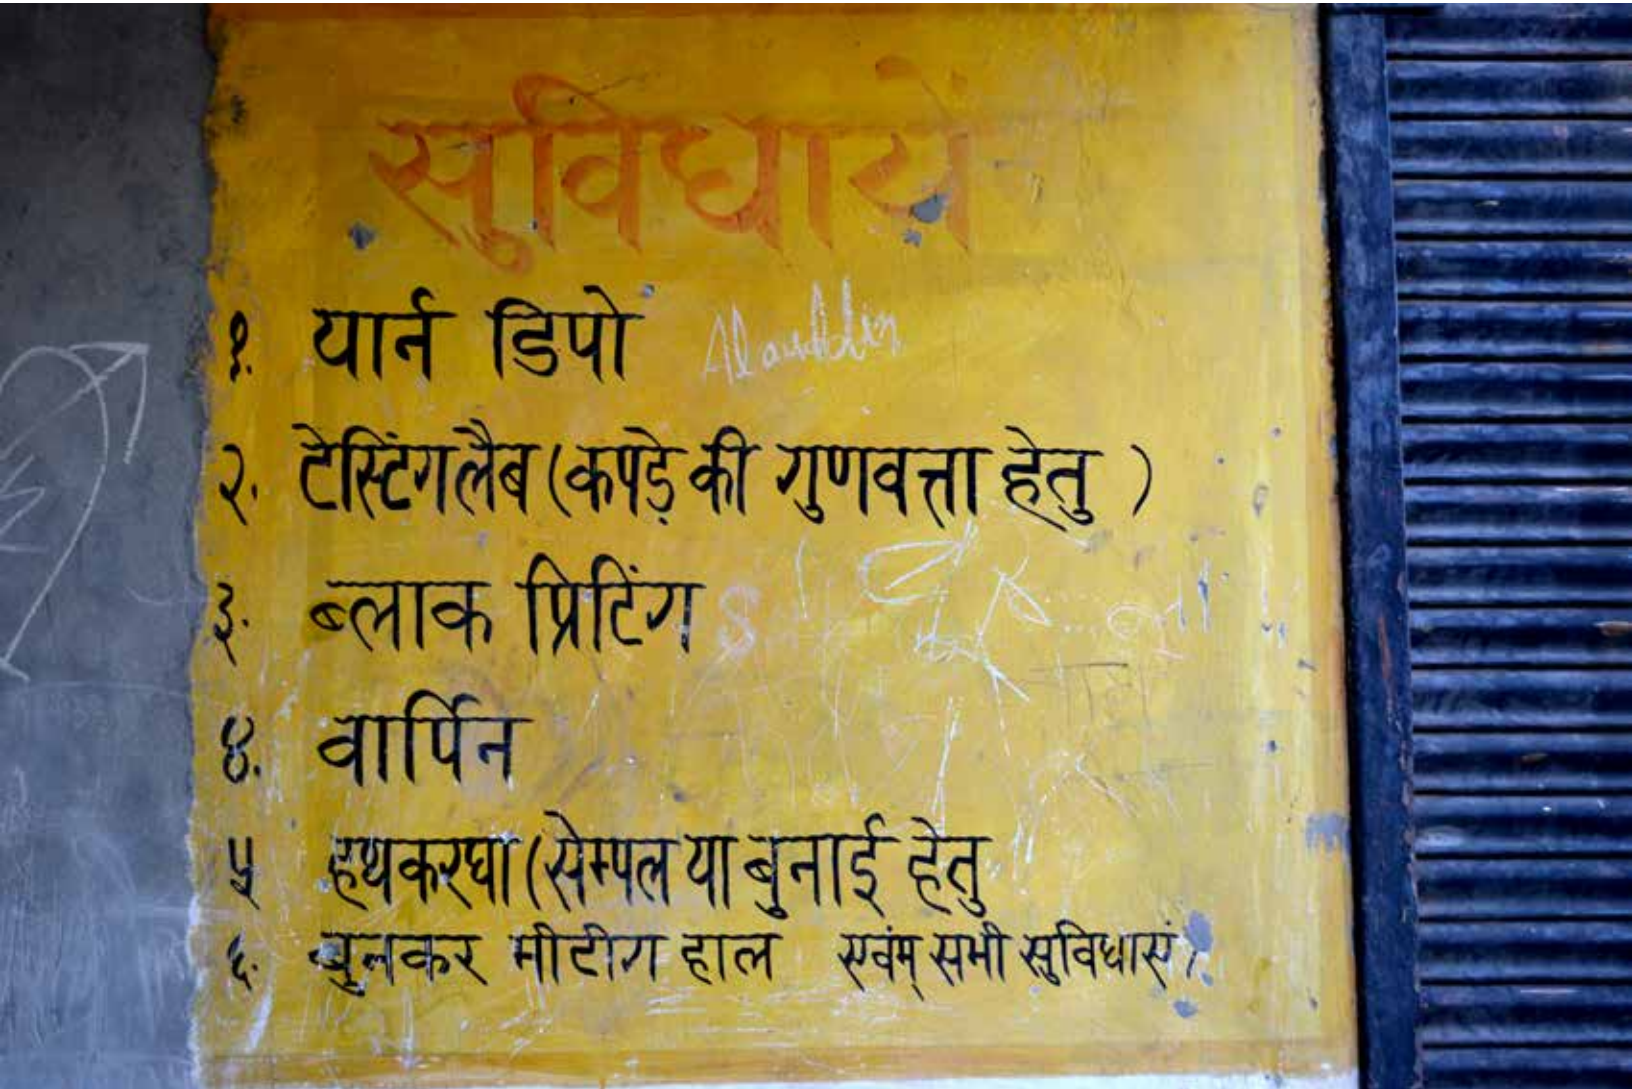 सुविधाये
१. यार्न डिपो
Alauddin
२. टेस्टिंगलैब (कपड़े की गुणवत्ता हेतु )
३. ब्लाक प्रिटिंग
४. वार्पिन
५ हथकरघा (सेम्पल या बुनाई हेतु
६. बुनकर मीटींग हाल एवंम् सभी सुविधाएं)